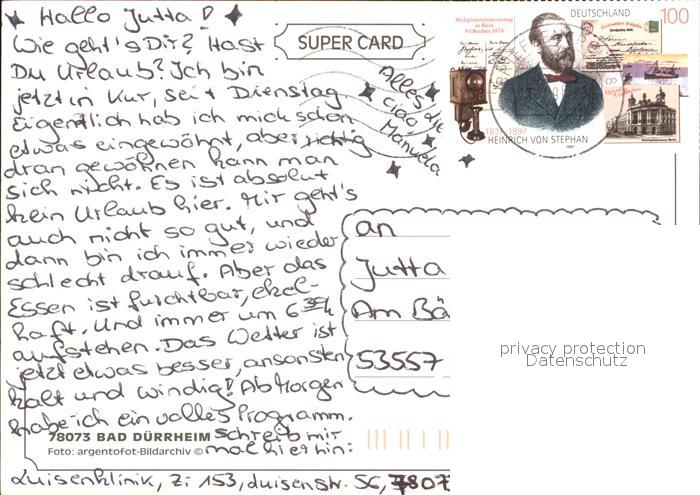 Hallo Jutta!
Wie geht's Dir? Hast
Du Urlaub? Ich bin
jetzt in Kur, seit Dienstag
Eigentlich hab ich mich schon
etwas eingewöhnt, aber richtig
dran gewöhnen kann man
sich nicht. Es ist absolut
kein Urlaub hier. Mir geht's
auch nicht so gut, und
dann bin ich immer wieder
schlecht drauf. Aber das
Essen ist furchtbar, ekel-
haft. Und immer um 6 30h
aufstehen. Das Wetter ist
jetzt etwas besser, ansonsten
kalt und windig! Ab Morgen
habe ich ein volles Programm.
Schreib mir
mal hier hin:
Luisenklinik, Zi 153, Luisenstr. 56, 7807
Alles Liebe
Ciao,
Manuela
SUPER CARD
78073 BAD DÜRRHEIM
Foto: argentofot-Bildarchiv ©
DEUTSCHLAND 100
Weltpostvereinsvertrag
in Bern
9.Oktober 1874
1831-1897
HEINRICH VON STEPHAN
1997
an
Jutta
Am Bä
53557
privacy protection
Datenschutz